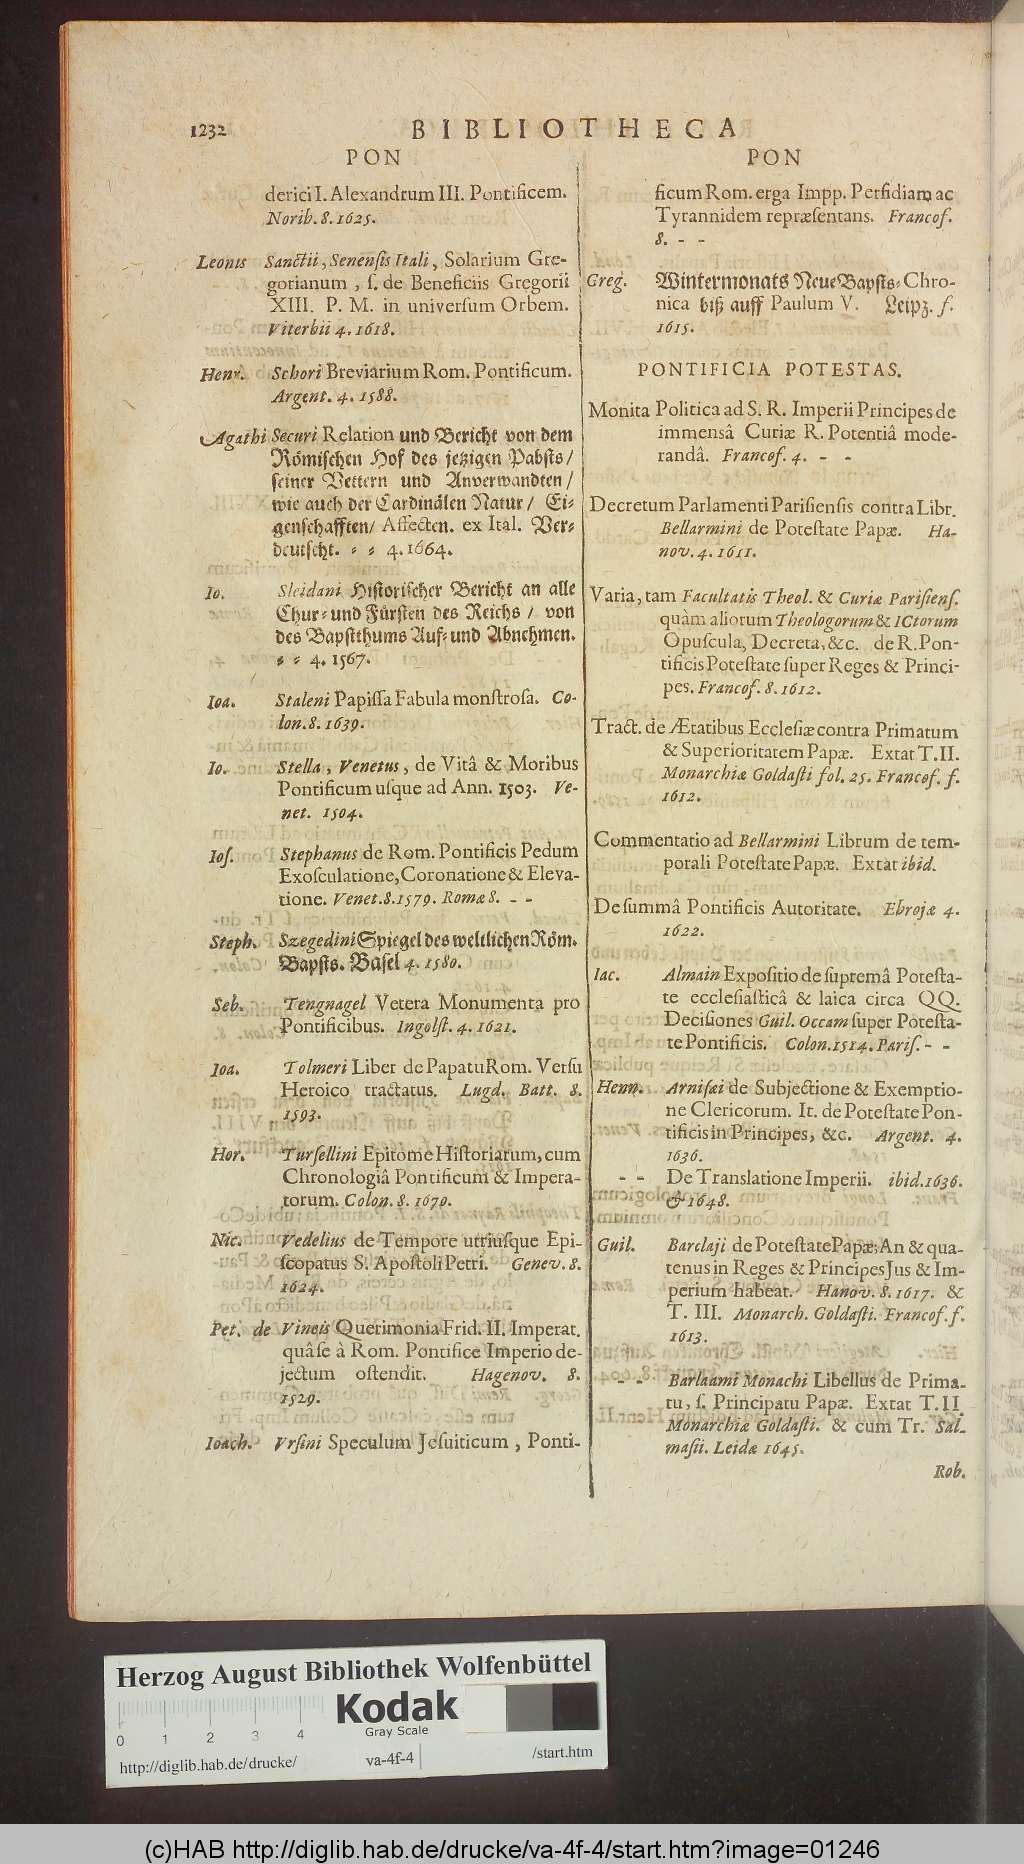 1232
BIBLIOTHECA
PON
derici I. Alexandrum III. Pontificem.
Norib. 8. 1625.
Leonis Sanctii, Senenſis Itali, Solarium Gre-
gorianum, ſ. de Beneficiis Gregorii
XIII. P. M. in univerſum Orbem.
Viterbii 4. 1618.
Henr. Schori Breviarium Rom. Pontificum.
Argent. 4. 1588.
Agathi Securi Relation und Bericht von dem
Römiſchen Hof des jetzigen Pabſts/
ſeiner Vettern und Anverwandten/
wie auch der Cardinälen Natur/ Ei-
genſchafften/ Affecten. ex Ital. Ver-
deutſcht. - - 4. 1664.
Io. Sleidani Hiſtoriſcher Bericht an alle
Chur- und Fürſten des Reichs/ von
des Bapſtthums Auf- und Abnehmen.
- - 4. 1567.
Ioa. Staleni Papiſſa Fabula monſtroſa. Co-
lon. 8. 1639.
Io. Stella, Venetus, de Vitâ & Moribus
Pontificum uſque ad Ann. 1503. Ve-
net. 1504.
Ioſ. Stephanus de Rom. Pontificis Pedum
Exoſculatione, Coronatione & Eleva-
tione. Venet. 8. 1579. Romæ 8. - -
Steph. Szegedini Spiegel des weltlichen Röm.
Bapſts. Baſel 4. 1580.
Seb. Tengnagel Vetera Monumenta pro
Pontificibus. Ingolſt. 4. 1621.
Ioa. Tolmeri Liber de Papatu Rom. Verſu
Heroico tractatus. Lugd. Batt. 8.
1593.
Hor. Turſellini Epitome Hiſtoriarum, cum
Chronologiâ Pontificum & Impera-
torum. Colon. 8. 1670.
Nic. Vedelius de Tempore utriuſque Epi-
ſcopatus S. Apoſtoli Petri. Genev. 8.
1624.
Pet. de Vineis Querimonia Frid. II. Imperat.
quâ ſe à Rom. Pontifice Imperio de-
jectum oſtendit. Hagenov. 8.
1529.
Ioach. Vrſini Speculum Jeſuiticum, Ponti-
PON
ficum Rom. erga Impp. Perfidiam ac
Tyrannidem repræſentans. Francof.
8. - -
Greg. Wintermonats Neue Bapſts-Chro-
nica biß auff Paulum V. Leipz. f.
1615.
PONTIFICIA POTESTAS.
Monita Politica ad S. R. Imperii Principes de
immensâ Curiæ R. Potentiâ mode-
randâ. Francof. 4. - -
Decretum Parlamenti Pariſienſis contra Libr.
Bellarmini de Poteſtate Papæ. Ha-
nov. 4. 1611.
Varia, tam Facultatis Theol. & Curiæ Pariſienſ.
quàm aliorum Theologorum & ICtorum
Opuſcula, Decreta, &c. de R. Pon-
tificis Poteſtate ſuper Reges & Princi-
pes. Francof. 8. 1612.
Tract. de Ætatibus Eccleſiæ contra Primatum
& Superioritatem Papæ. Extat T. II.
Monarchiæ Goldaſti fol. 25. Francof. f.
1612.
Commentatio ad Bellarmini Librum de tem-
porali Poteſtate Papæ. Extat ibid.
De ſummâ Pontificis Autoritate. Ebrojæ 4.
1622.
Iac. Almain Expoſitio de ſupremâ Poteſta-
te eccleſiaſticâ & laica circa QQ.
Deciſiones Guil. Occam ſuper Poteſta-
te Pontificis. Colon. 1514. Pariſ. - -
Henn. Arniſæi de Subjectione & Exemptio-
ne Clericorum. It. de Poteſtate Pon-
tificis in Principes, &c. Argent. 4.
1636.
- - De Translatione Imperii. ibid. 1636.
& 1648.
Guil. Barclaji de Poteſtate Papæ; An & qua-
tenus in Reges & Principes Jus & Im-
perium habeat. Hanov. 8. 1617. &
T. III. Monarch. Goldaſti. Francof. f.
1613.
- - Barlaami Monachi Libellus de Prima-
tu, ſ. Principatu Papæ. Extat T. II.
Monarchiæ Goldaſti. & cum Tr. Sal-
maſii. Leidæ 1645.
Rob.
Herzog August Bibliothek Wolfenbüttel
Kodak
Gray Scale
0 1 2 3 4
http://diglib.hab.de/drucke/ va-4f-4 /start.htm
(c)HAB http://diglib.hab.de/drucke/va-4f-4/start.htm?image=01246